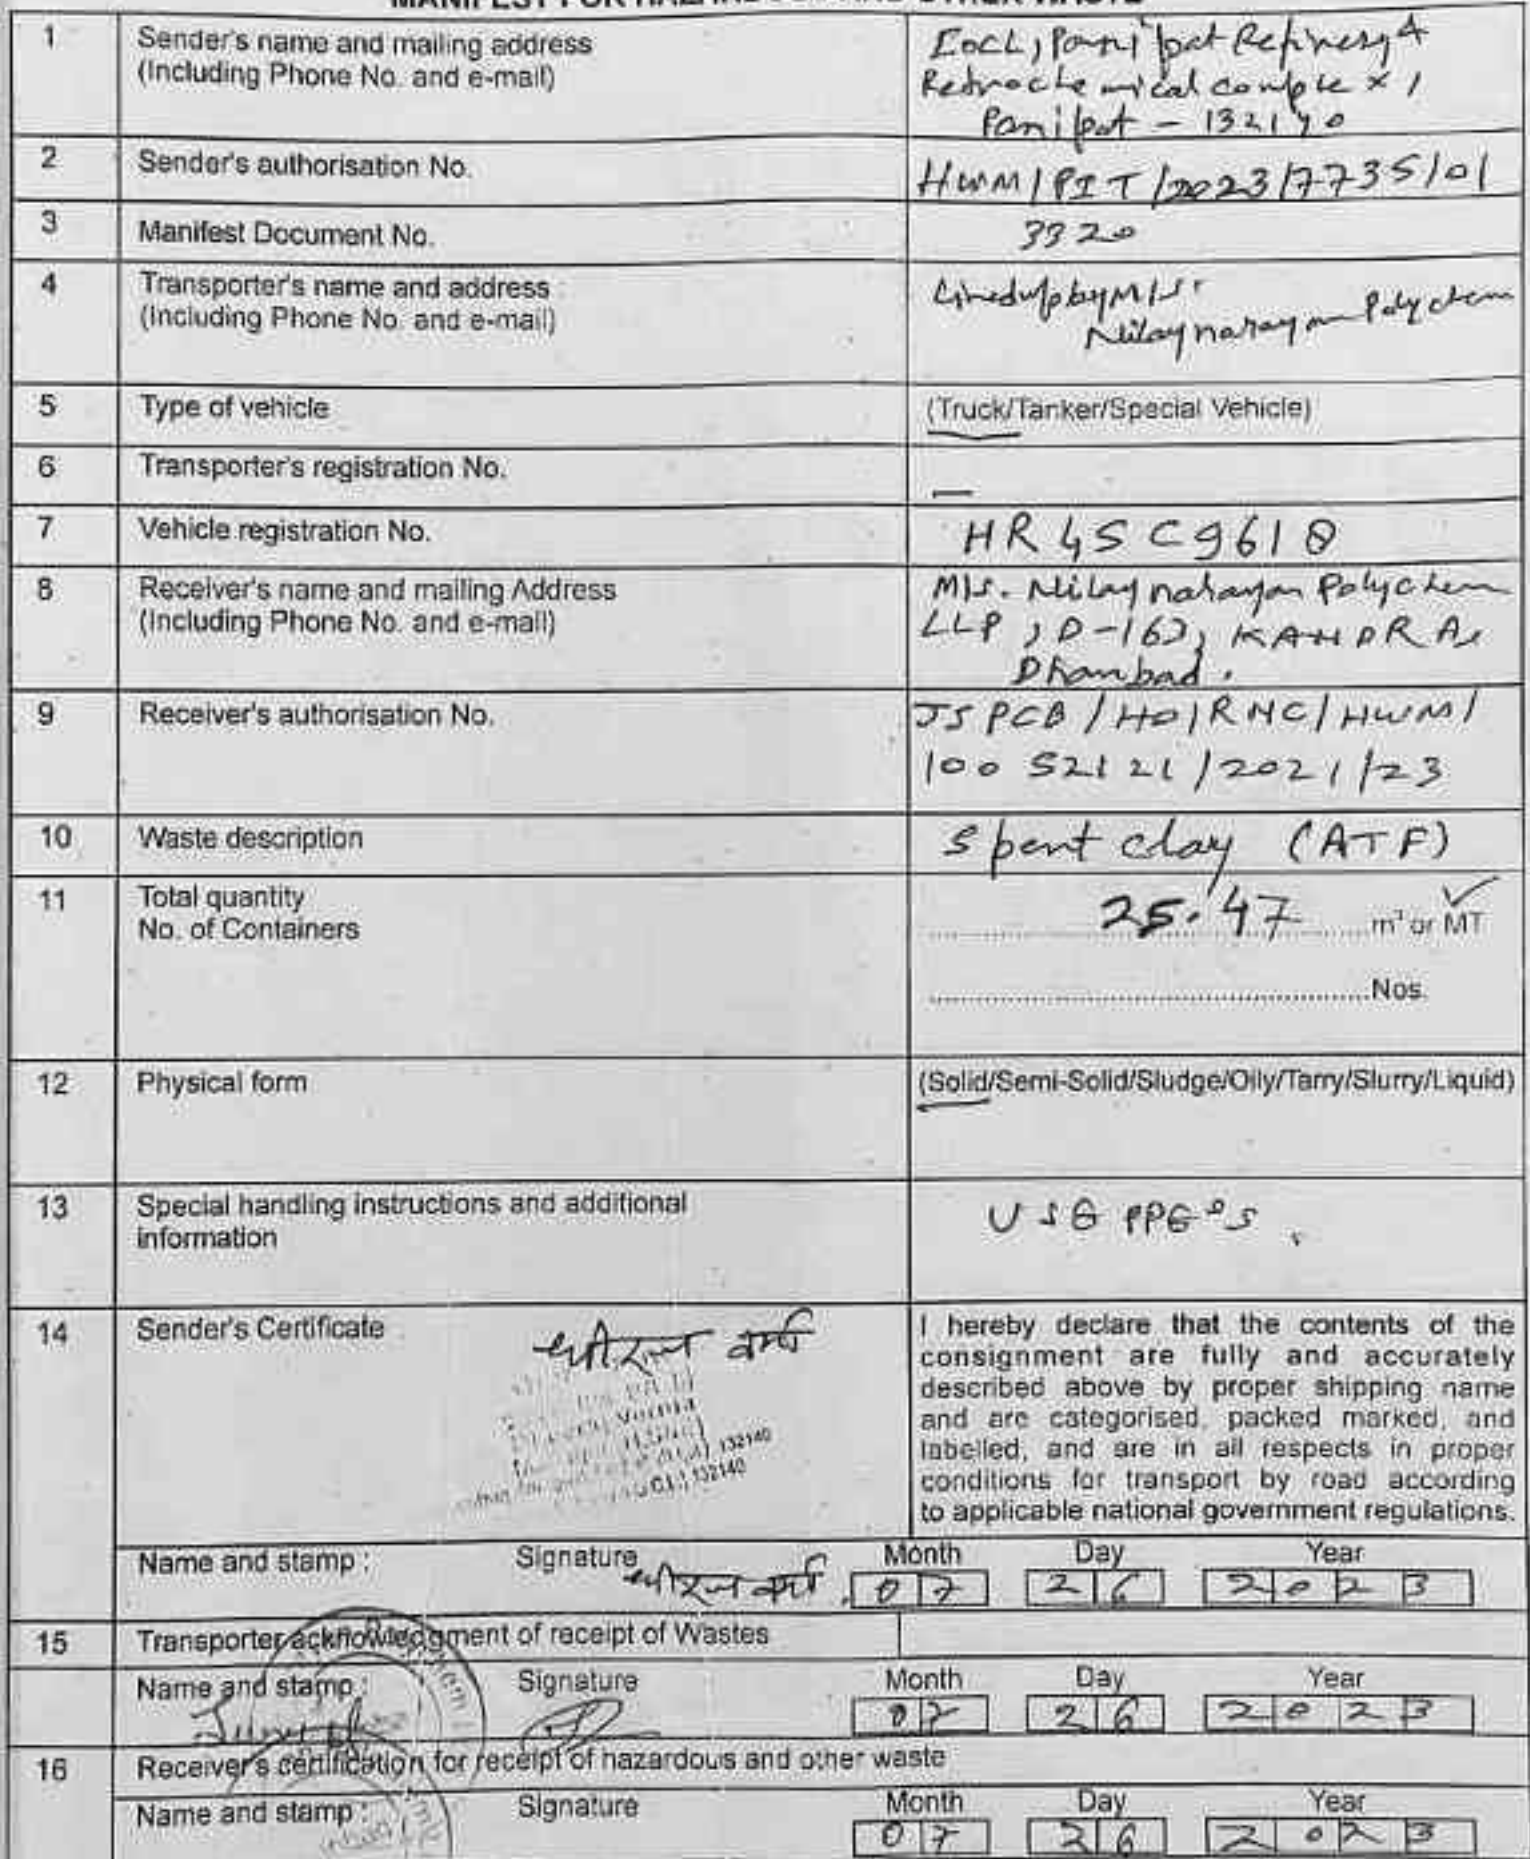 MANIFEST FOR HAZARDOUS AND OTHER WASTE
1 Sender's name and mailing address
(Including Phone No. and e-mail)
IOCL, Panipat Refinery &
Petrochemical complex,
Panipat - 132140
2 Sender's authorisation No.
HWM/PIT/2023/7735101
3 Manifest Document No.
3320
4 Transporter's name and address
(Including Phone No. and e-mail)
Linedup by M/s.
Nilaynarayan Polychem
5 Type of vehicle
(Truck/Tanker/Special Vehicle)
6 Transporter's registration No.
—
7 Vehicle registration No.
HR45C9610
8 Receiver's name and mailing Address
(Including Phone No. and e-mail)
M/s. Nilaynarayan Polychem
LLP, D-163, KANDRA,
Dhanbad.
9 Receiver's authorisation No.
JSPCB/HO/RNC/HWM/
10052121/2021/23
10 Waste description
Spent clay (ATF)
11 Total quantity
No. of Containers
25.47 m³ or MT
Nos.
12 Physical form
(Solid/Semi-Solid/Sludge/Oily/Tarry/Slurry/Liquid)
13 Special handling instructions and additional
information
USE PPE'S.
14 Sender's Certificate
धीरज वर्मा
Verma
132140
132140
I hereby declare that the contents of the
consignment are fully and accurately
described above by proper shipping name
and are categorised, packed marked, and
labelled, and are in all respects in proper
conditions for transport by road according
to applicable national government regulations.
Name and stamp : Signature धीरज वर्मा Month Day Year
07 26 2023
15 Transporter acknowledgment of receipt of Wastes
Name and stamp : Signature Month Day Year
07 26 2023
16 Receiver's certification for receipt of hazardous and other waste
Name and stamp : Signature Month Day Year
07 26 2023